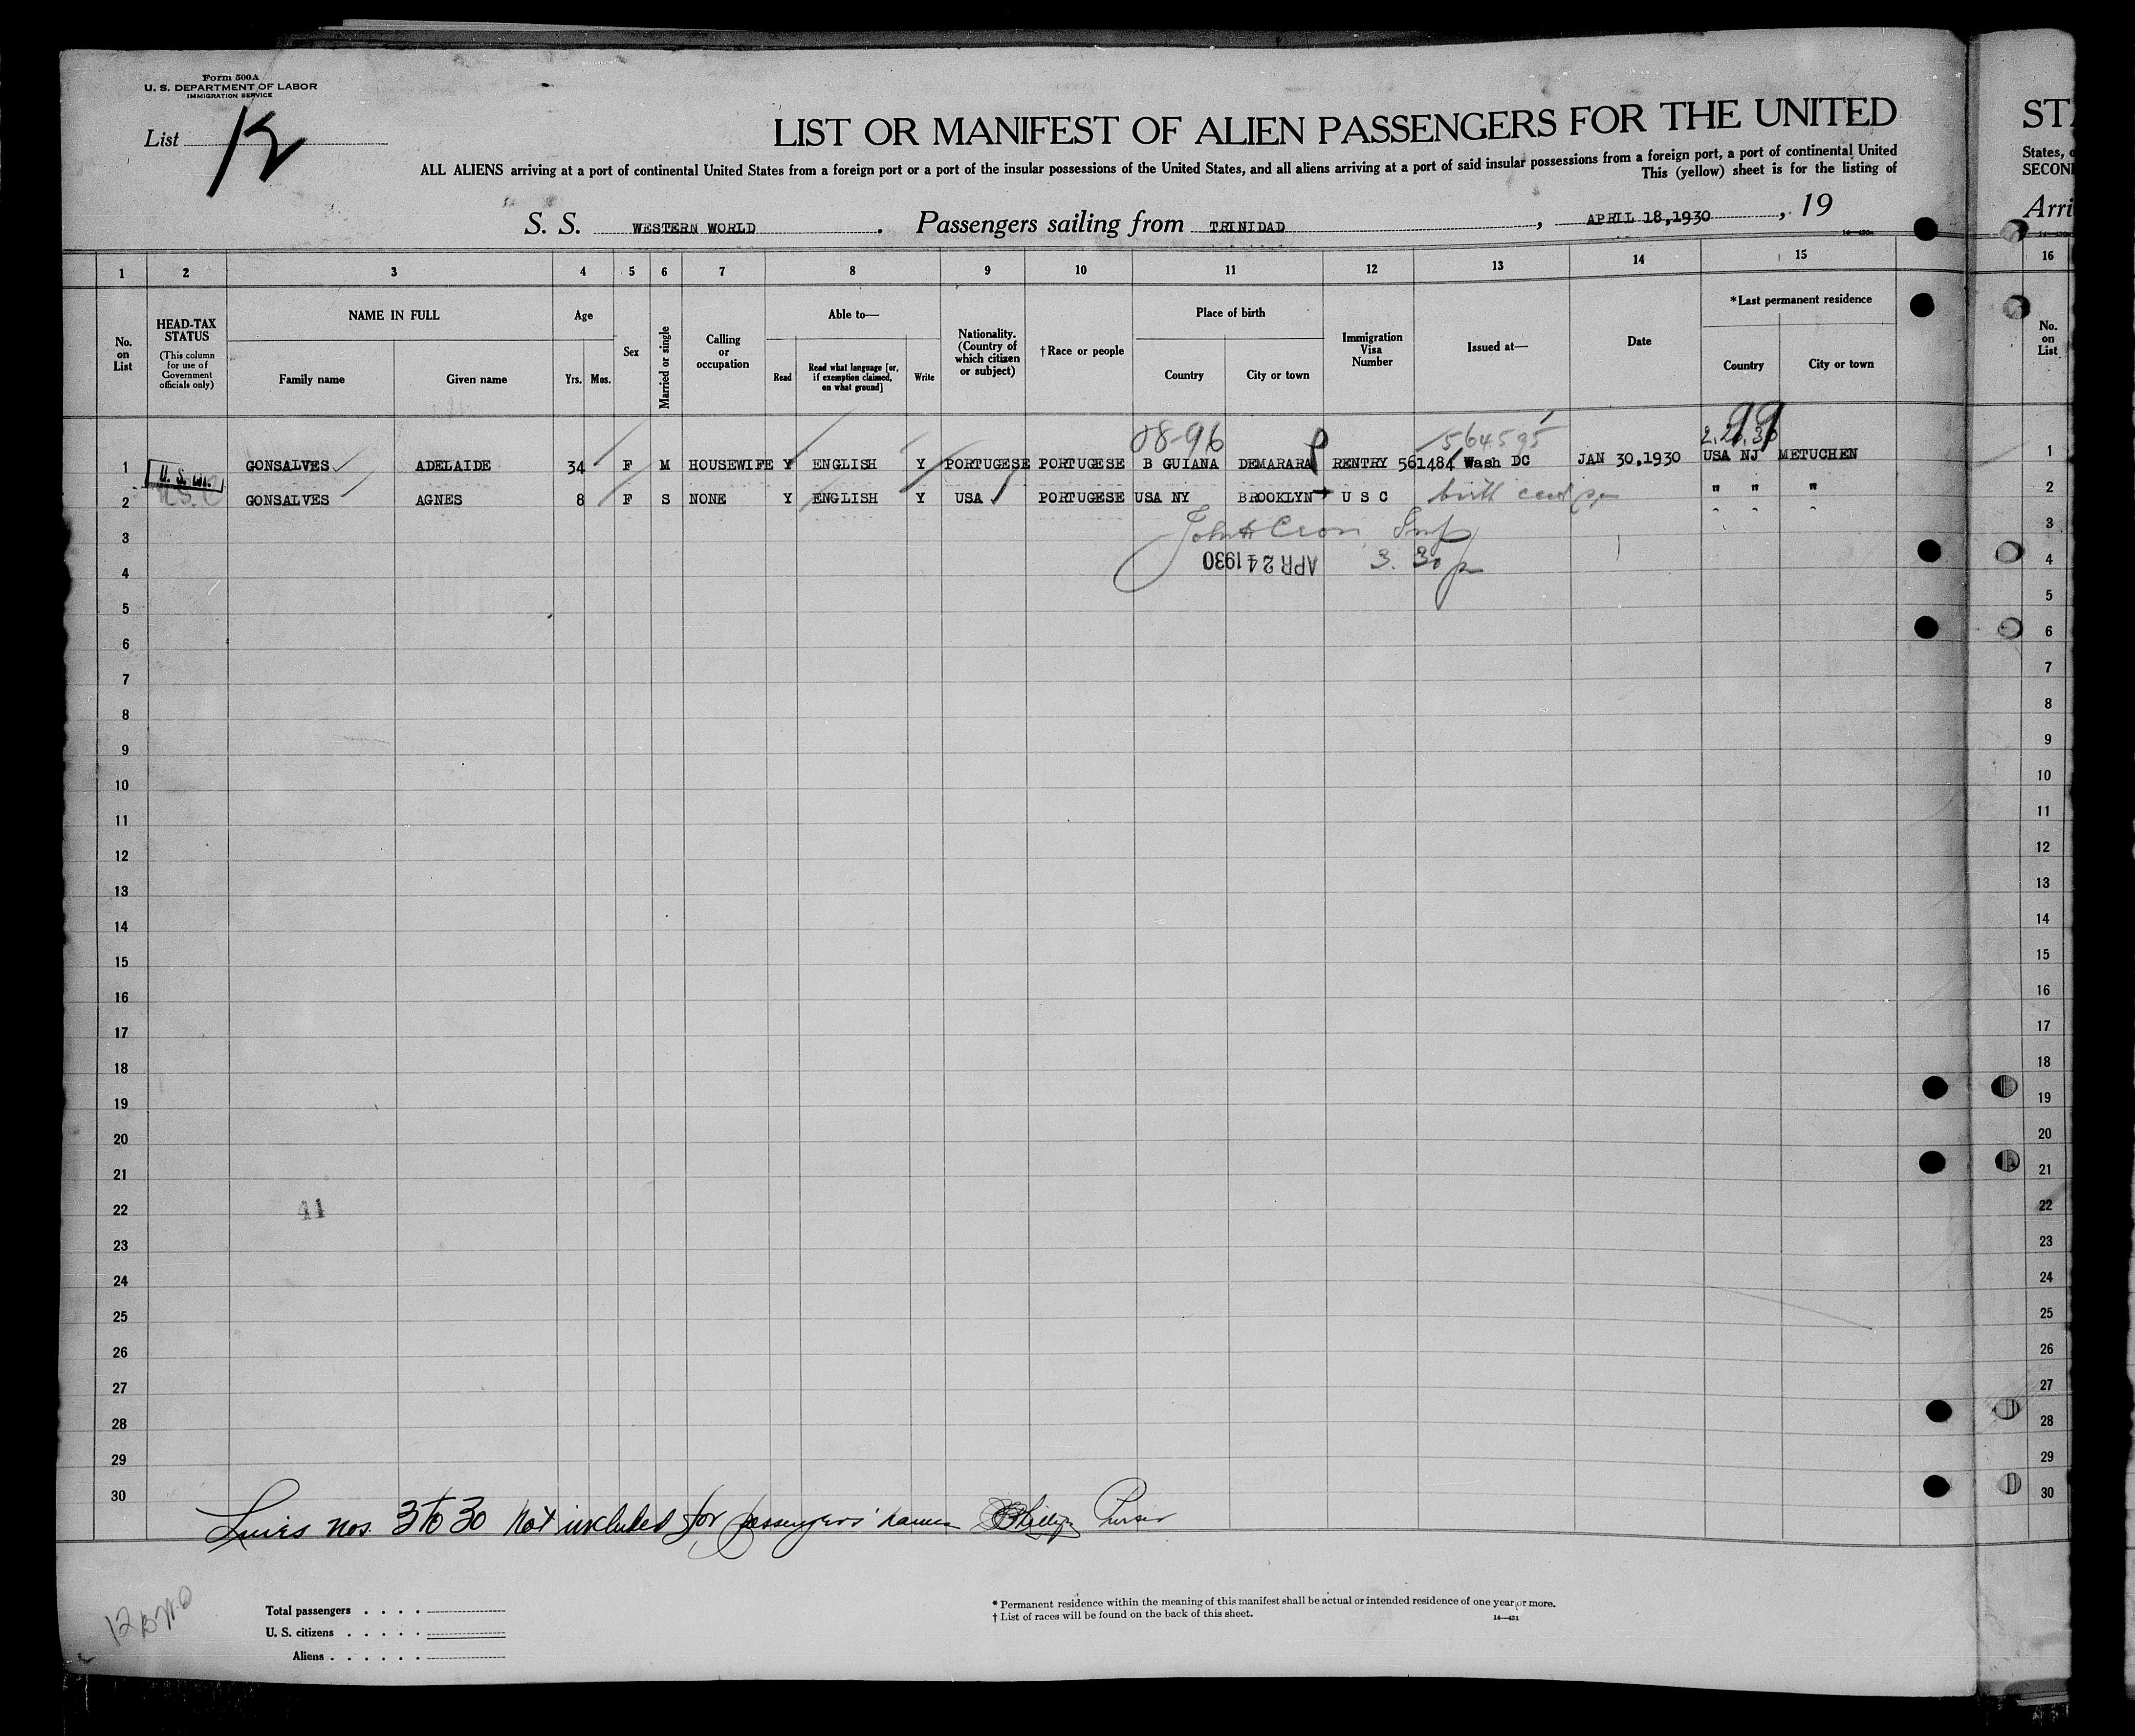 Form 500A
U. S. DEPARTMENT OF LABOR
IMMIGRATION SERVICE
List 12
LIST OR MANIFEST OF ALIEN PASSENGERS FOR THE UNITED
ALL ALIENS arriving at a port of continental United States from a foreign port or a port of the insular possessions of the United States, and all aliens arriving at a port of said insular possessions from a foreign port, a port of continental United
This (yellow) sheet is for the listing of
S. S. WESTERN WORLD . Passengers sailing from TRINIDAD , APRIL 18,1930 , 19
ST
States,
SECON
Arri
1 2 3 4 5 6 7 8 9 10 11 12 13 14 15 16
No. on List
HEAD-TAX STATUS (This column for use of Government officials only)
NAME IN FULL
Family name Given name
Age
Yrs. Mos.
Sex
Married or single
Calling or occupation
Able to—
Read
Read what language [or, if exemption claimed, on what ground]
Write
Nationality. (Country of which citizen or subject)
†Race or people
Place of birth
Country City or town
Immigration Visa Number
Issued at—
Date
*Last permanent residence
Country City or town
No. on List
99
564595
1 GONSALVES ADELAIDE 34 F M HOUSEWIFE Y ENGLISH Y PORTUGESE PORTUGESE B GUIANA DEMARARA RENTRY 561484 Wash DC JAN 30,1930 USA NJ METUCHEN 1
2 GONSALVES AGNES 8 F S NONE Y ENGLISH Y USA PORTUGESE USA NY BROOKLYN U S C birth " " " 2
3 John Cron Insp 3
4 APR 24 1930 3. 30 p 4
5 5
6 6
7 7
8 8
9 9
10 10
11 11
12 12
13 13
14 14
15 15
16 16
17 17
18 18
19 19
20 20
21 21
22 41 22
23 23
24 24
25 25
26 26
27 27
28 28
29 29
30 30
Lines nos. 3 to 30 not included for passengers' names Purser
Total passengers . . . .
U. S. citizens . . . . .
Aliens . . . . . .
* Permanent residence within the meaning of this manifest shall be actual or intended residence of one year or more.
† List of races will be found on the back of this sheet.
14—431